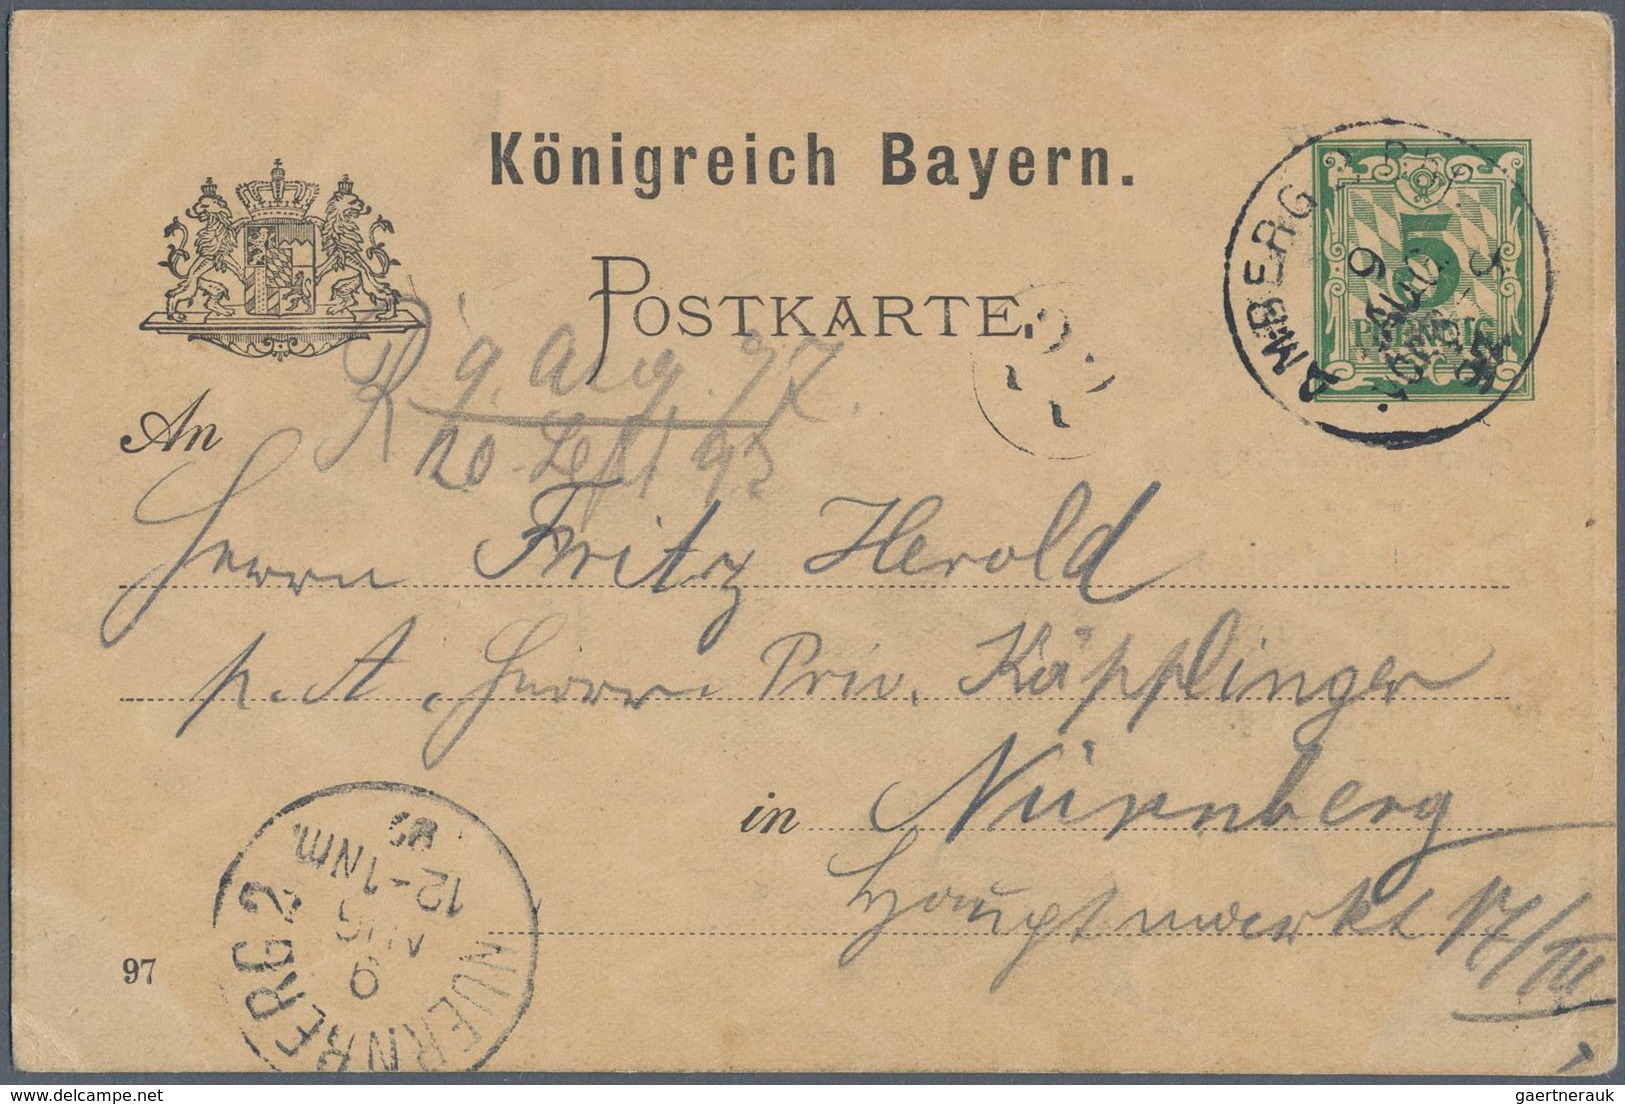 Königreich Bayern.
POSTKARTE.
AMBERG
9
AUG.
5
PFENNIG
R 9. Aug. 97.
20. Sept 93
An
Herrn Fritz Herold
p. A. Herrn Priv. Käpplinger
in Nürnberg
Hauptmarkt 17/III
NUERNBERG 2
9
AUG
12-1 Nm.
97
gaertnerauk